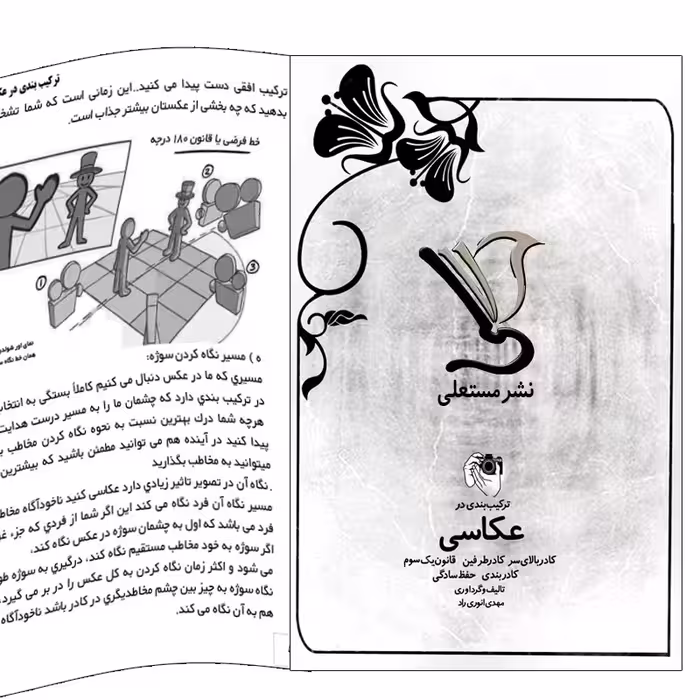 ترکیب بندی در
ترکیب افقی دست پیدا می کنید..این زمانی است که شما
بدهید که چه بخشی از عکستان بیشتر جذاب است.
خط فرضی یا قانون ۱۸۰ درجه
2
1
3
نمای اور
همان خط نگاه
ه ) مسیر نگاه کردن سوژه:
مسیري که ما در عکس دنبال می کنیم کاملاً بستگی به
در ترکیب بندي دارد که چشمان ما را به مسیر درست
هرچه شما درك بهترین نسبت به نحوه نگاه کردن مخاطب
پیدا کنید در آینده هم می توانید مطمئن باشید که بیشترین
میتوانید به مخاطب بگذارید
.نگاه آن در تصویر تاثیر زیادي دارد عکاسی کنید ناخودآگاه
مسیر نگاه آن فرد نگاه می کند این اگر شما از فردي که جزء
فرد می باشد که اول به چشمان سوژه در عکس نگاه کند،
اگر سوژه به خود مخاطب مستقیم نگاه کند، درگیري به سوژه
می شود و اکثر زمان نگاه کردن به کل عکس را در بر می گیرد
نگاه سوژه به چیز بین چشم مخاطدیگري در کادر باشد ناخودآگاه
هم به آن نگاه می کند.
نشر مستعلی
ترکیب‌بندی در
عکاسی
کادر بالای سر کادر طرفین قانون یک سوم
کادر بندی حفظ سادگی
تالیف و گرداوری
مهدی انوری راد